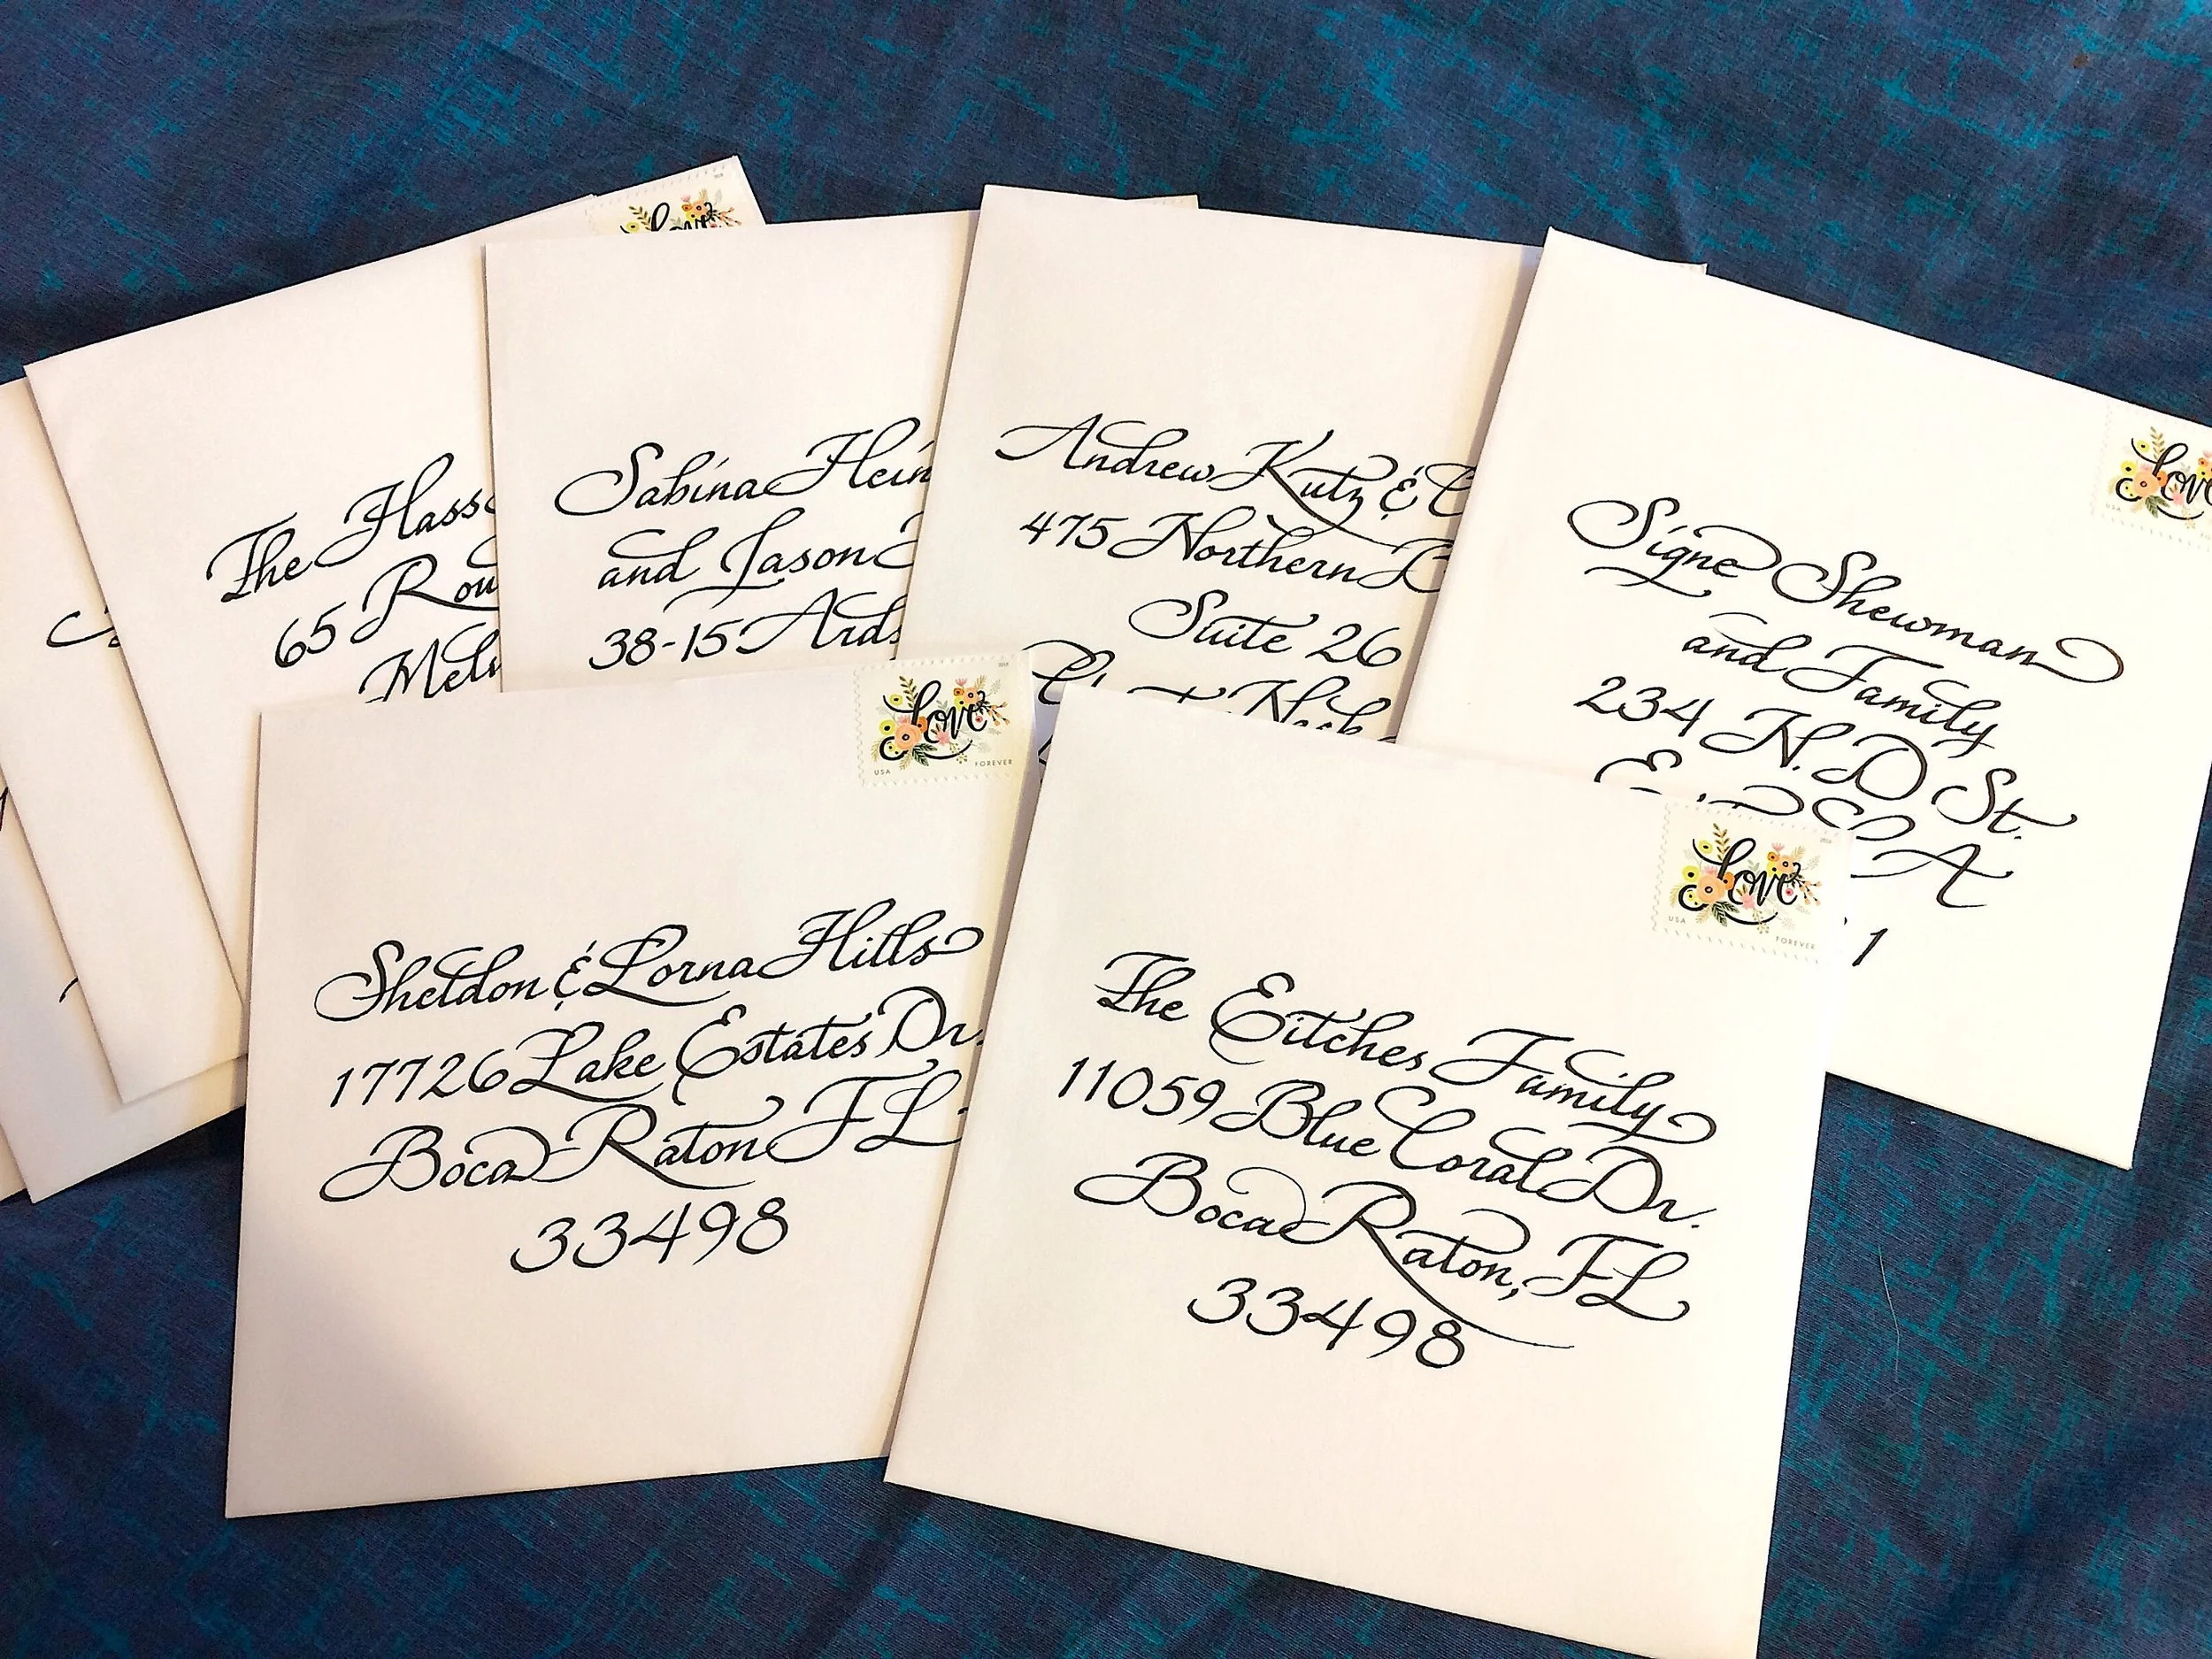 The
65
Sabina
and Jason
38-15
Andrew Kutz &
475 Northern
Suite 26
Neck
Signe Shewman
and Family
234 N. D St.
CA
1
Love
USA
Love
USA FOREVER
Sheldon & Lorna Hills
17726 Lake Estates Dr.
Boca Raton FL
33498
Love
USA FOREVER
The Eitches Family
11059 Blue Coral Dr.
Boca Raton, FL
33498